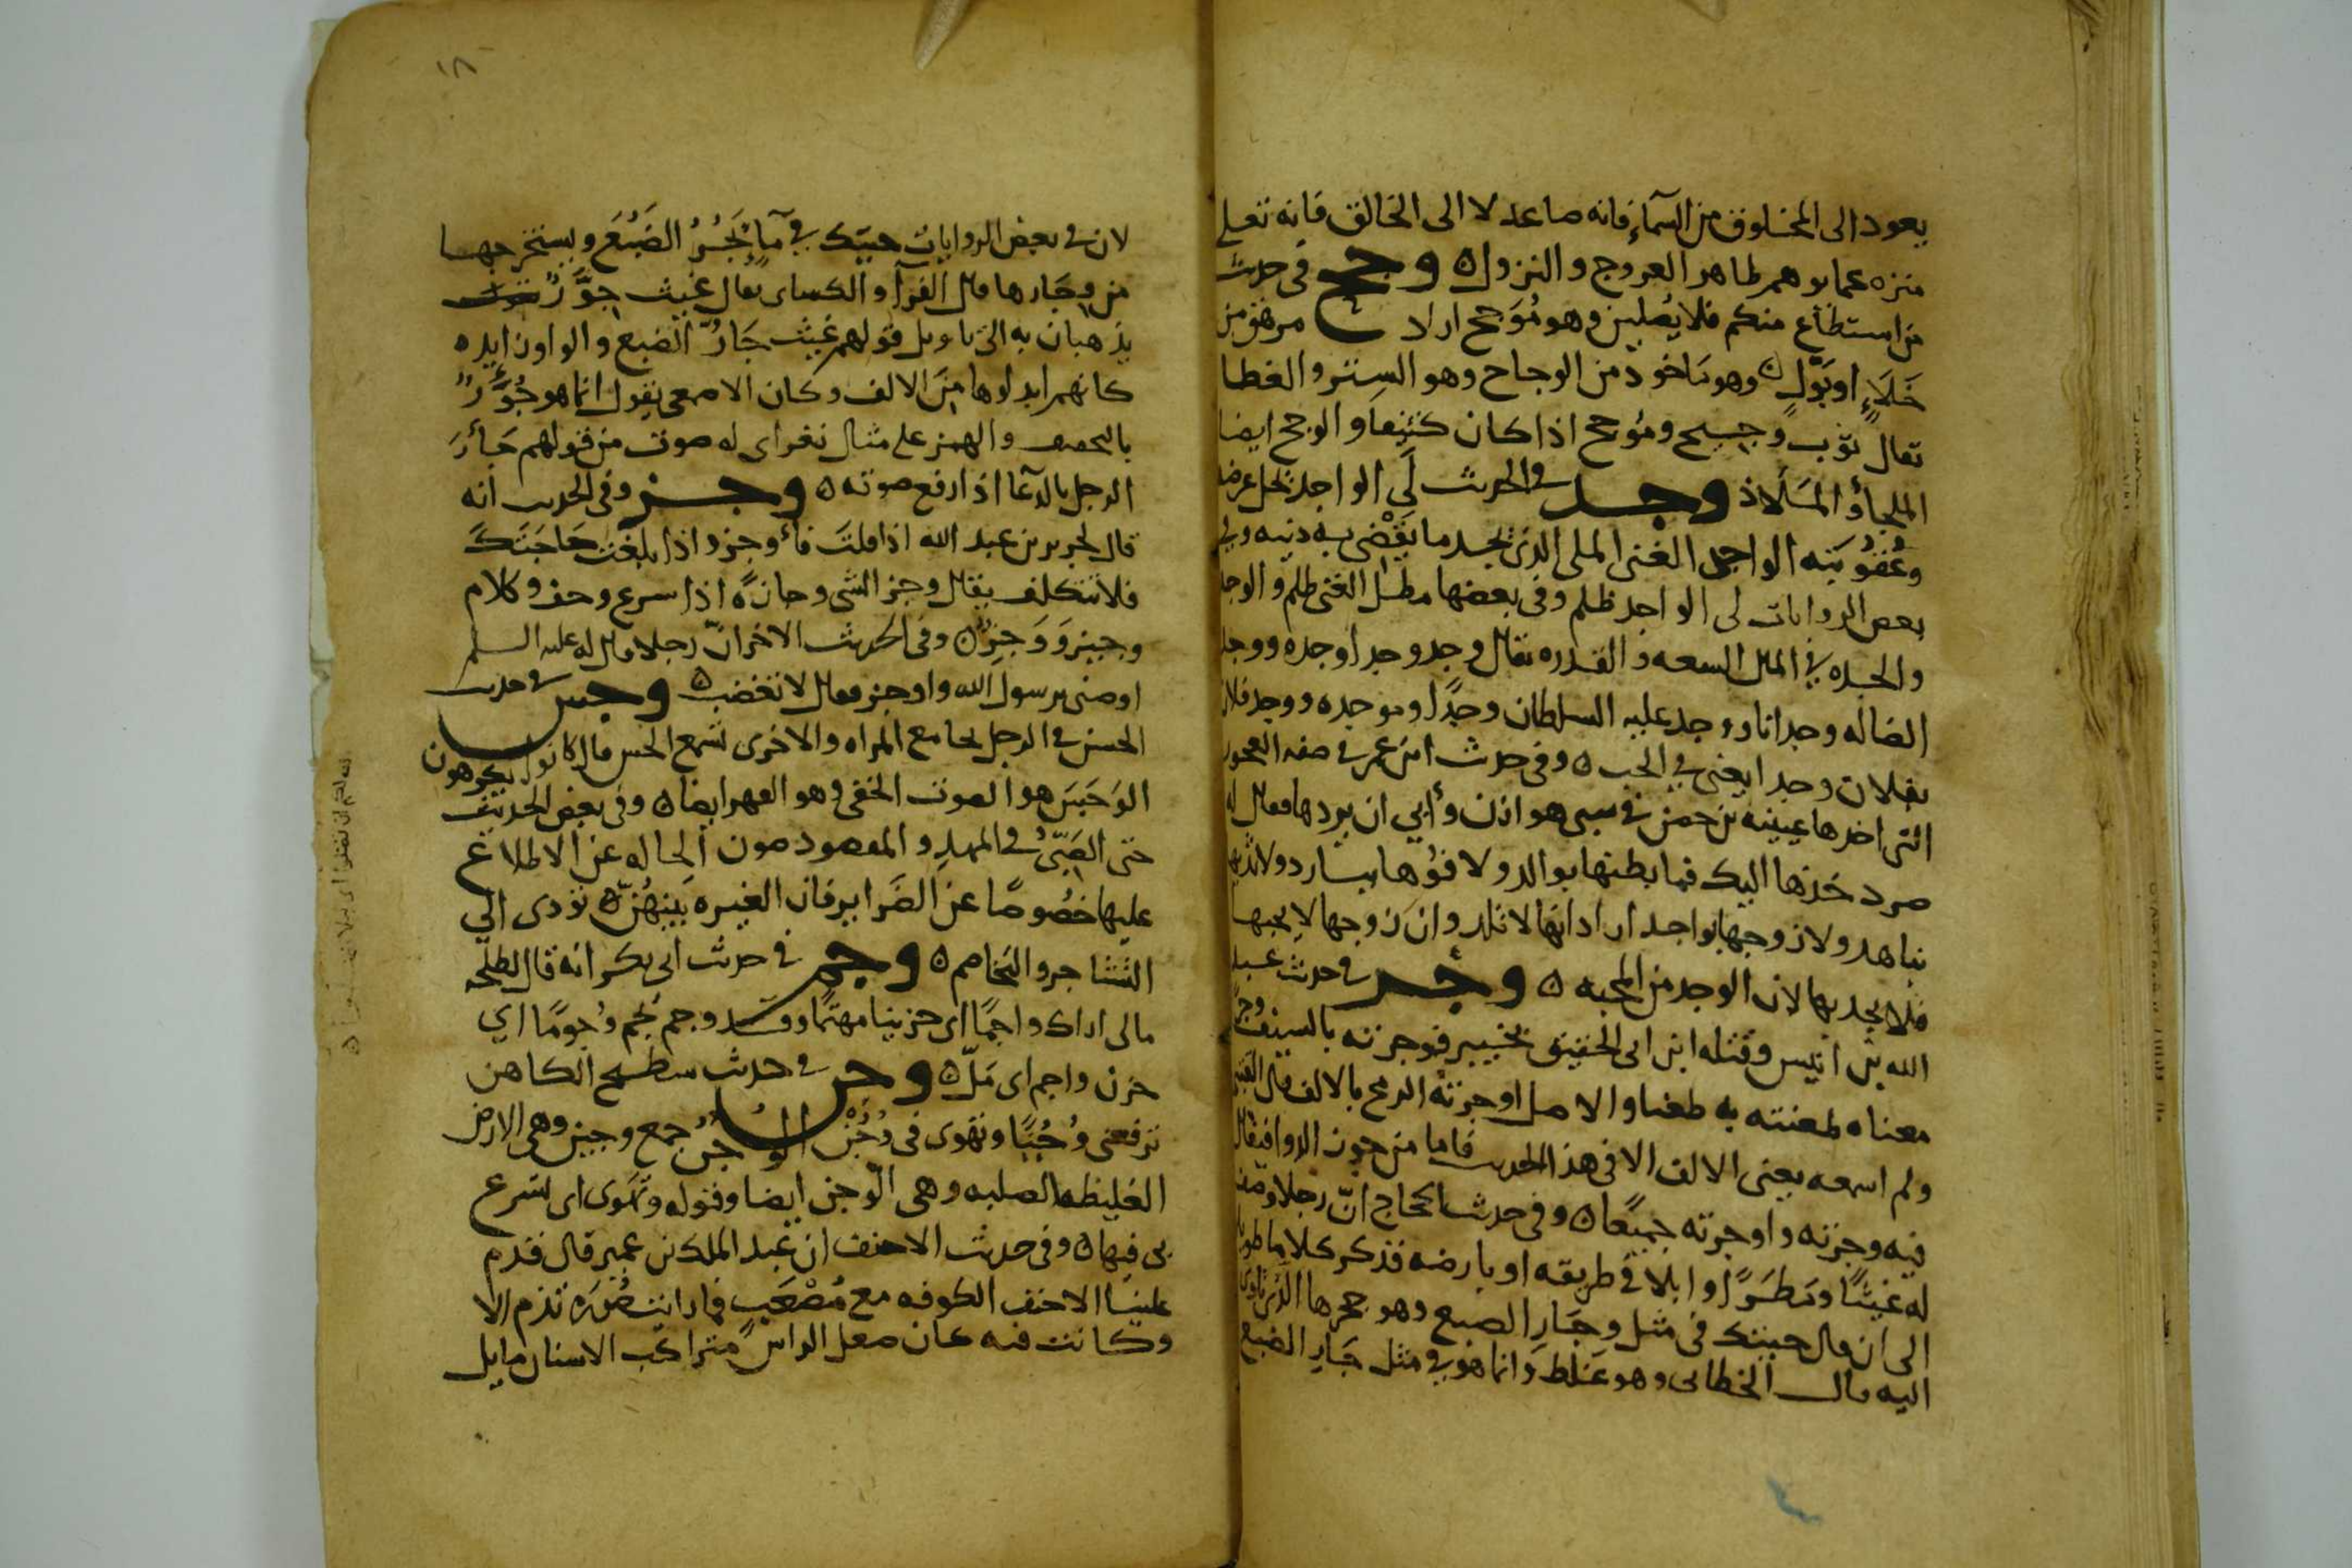 يعود الى المخلوق من السماء فانه صاعد لا الى الخالق فانه تعلى
منزه عما يوهم ظاهر العروج والنزول ه وجح في حديث
من استطاع منكم فلا يصلين وهو مُوَجح اي لا مرهق من
خَلَاءٍ او بَوْلٍ ه وهو ماخوذ من الوجاح وهو الستر والغطا
تقال ثوب وجيح ومُوجح اذا كان كثيفا والوجح ايضا
الملجأ والمَلَاذ وجد في الحديث لَي الواجد يحل عرضه
وعُقُوبَته الواجد الغنى الملى الذي يجد ما يَقْضى به دينه وفي
بعض الروايات لى الواجد ظلم وفي بعضها مطل الغنى ظلم والوجد
والجده في المال السعه والقدره يقال وجد وجدا وجده ووجد
الضاله وجدانا ووجد عليه السلطان وجدًا وموجده ووجد فلان
بفلان وجدا يعني في الحب ه وفي حديث ابن عمر في صفه العجوز
التى اخذها عيينه بن حصن في سبى هوازن وأبي ان يردها فقال له
صرد خذها اليك فما بطنها بوالد ولا فُوها ببارد ولا ثديها
بناهد ولا زوجها بواجد اراد انها لا تلد وان زوجها لا يحبها
فلا يجد بها لان الوجد من المحبه ه وجر في حديث عبد
الله بن انيس وقتله ابن ابى الحقيق بخيبر فوجرته بالسيف
معناه طعنته به طعنا والاصل اوجرته الرمح بالالف قال
ولم اسمعه بغير الالف الا في هذا الحديث فاما من وجور الدوا فيقال
فيه وجرته واوجرته جميعًا ه وفي حديث الحجاج انّ رجلا وصف
له غيثًا ومَطَرًا وابلا في طريقه او بارضه فذكر كلاما طويلا
الى ان قال جيتك في مثل وِجَارِ الضبع وهو جحرها الذي تاوى
اليه قال الخطابى وهو غلط وانما هو في مثل جَارِ الضبع
١٨
لان في بعض الروايات جيتك في مآ يَجُرُّ الضَبُعَ ويستخرجها
من وِجَارها قال الفرآ والكساى يقال غيث جِوَرٌّ
يذهبان به الى تاويل قولهم غيث جَارُّ الضبع والواو زايده
كانهم ابدلوها مِنَ الالف وكان الاصمعى يقول انما هو جُؤَرٌ
بالتخفيف والهمز على مثال نغر اى له صوت من قولهم جَأَرَ
الرجل بالدعآ اذا رفع صوته ه وجز وفي الحديث انه
قال لجرير بن عبد الله اذا قلتَ فأوجز واذا بلغت حَاجَتَكَ
فلا تتكلف يقال وجز الشى وجازةً اذا سرع وخف وكلام
وجيز وَوَجِزٌ ه وفي الحديث الاخر انّ رجلا قال له عليه السلم
اوصنى يرسول الله واوجز فقال لا تغضب ه وجس في حديث
الحسن في الرجل يجامع المراه والاخرى تسمع الحس قال كانوا يكرهون
الوَجَس هو الصوت الخفى وهو الفهر ايضا ه وفي بعض الحديث
حتى الصَبّىُ في المهدِ والمقصود صون الحاله عن الاطلاع
عليها خصُوصًا عن الضَرايرِ فان الغيره بَينهُنّ تؤدى الي
التشاجر والتخاصم ه وجم في حديث ابى بكر انه قال لطلحه
مالى اراك واجمًا اى حزينا مهتمًا وقد وجم يجم وُجومًا اي
حزن واجم اى مَلّ ه وجن في حديث سطيح الكاهن
ترفعنى وُجْنًا وتهوى في وُجْن الوُجْنُ جمع وجين وهى الارض
الغليظه الصلبه وهى الوجن ايضا وقوله وتَهوى اى تسرع
بى فيها ه وفي حديث الاحنف ان عبد الملك بن عمير قال قدم
علينا الاحنف الكوفه مع مُصْعَبٍ فما رايت خصلة تذم الا
وكانت فيه كان صعل الراس متراكب الاسنان مايل